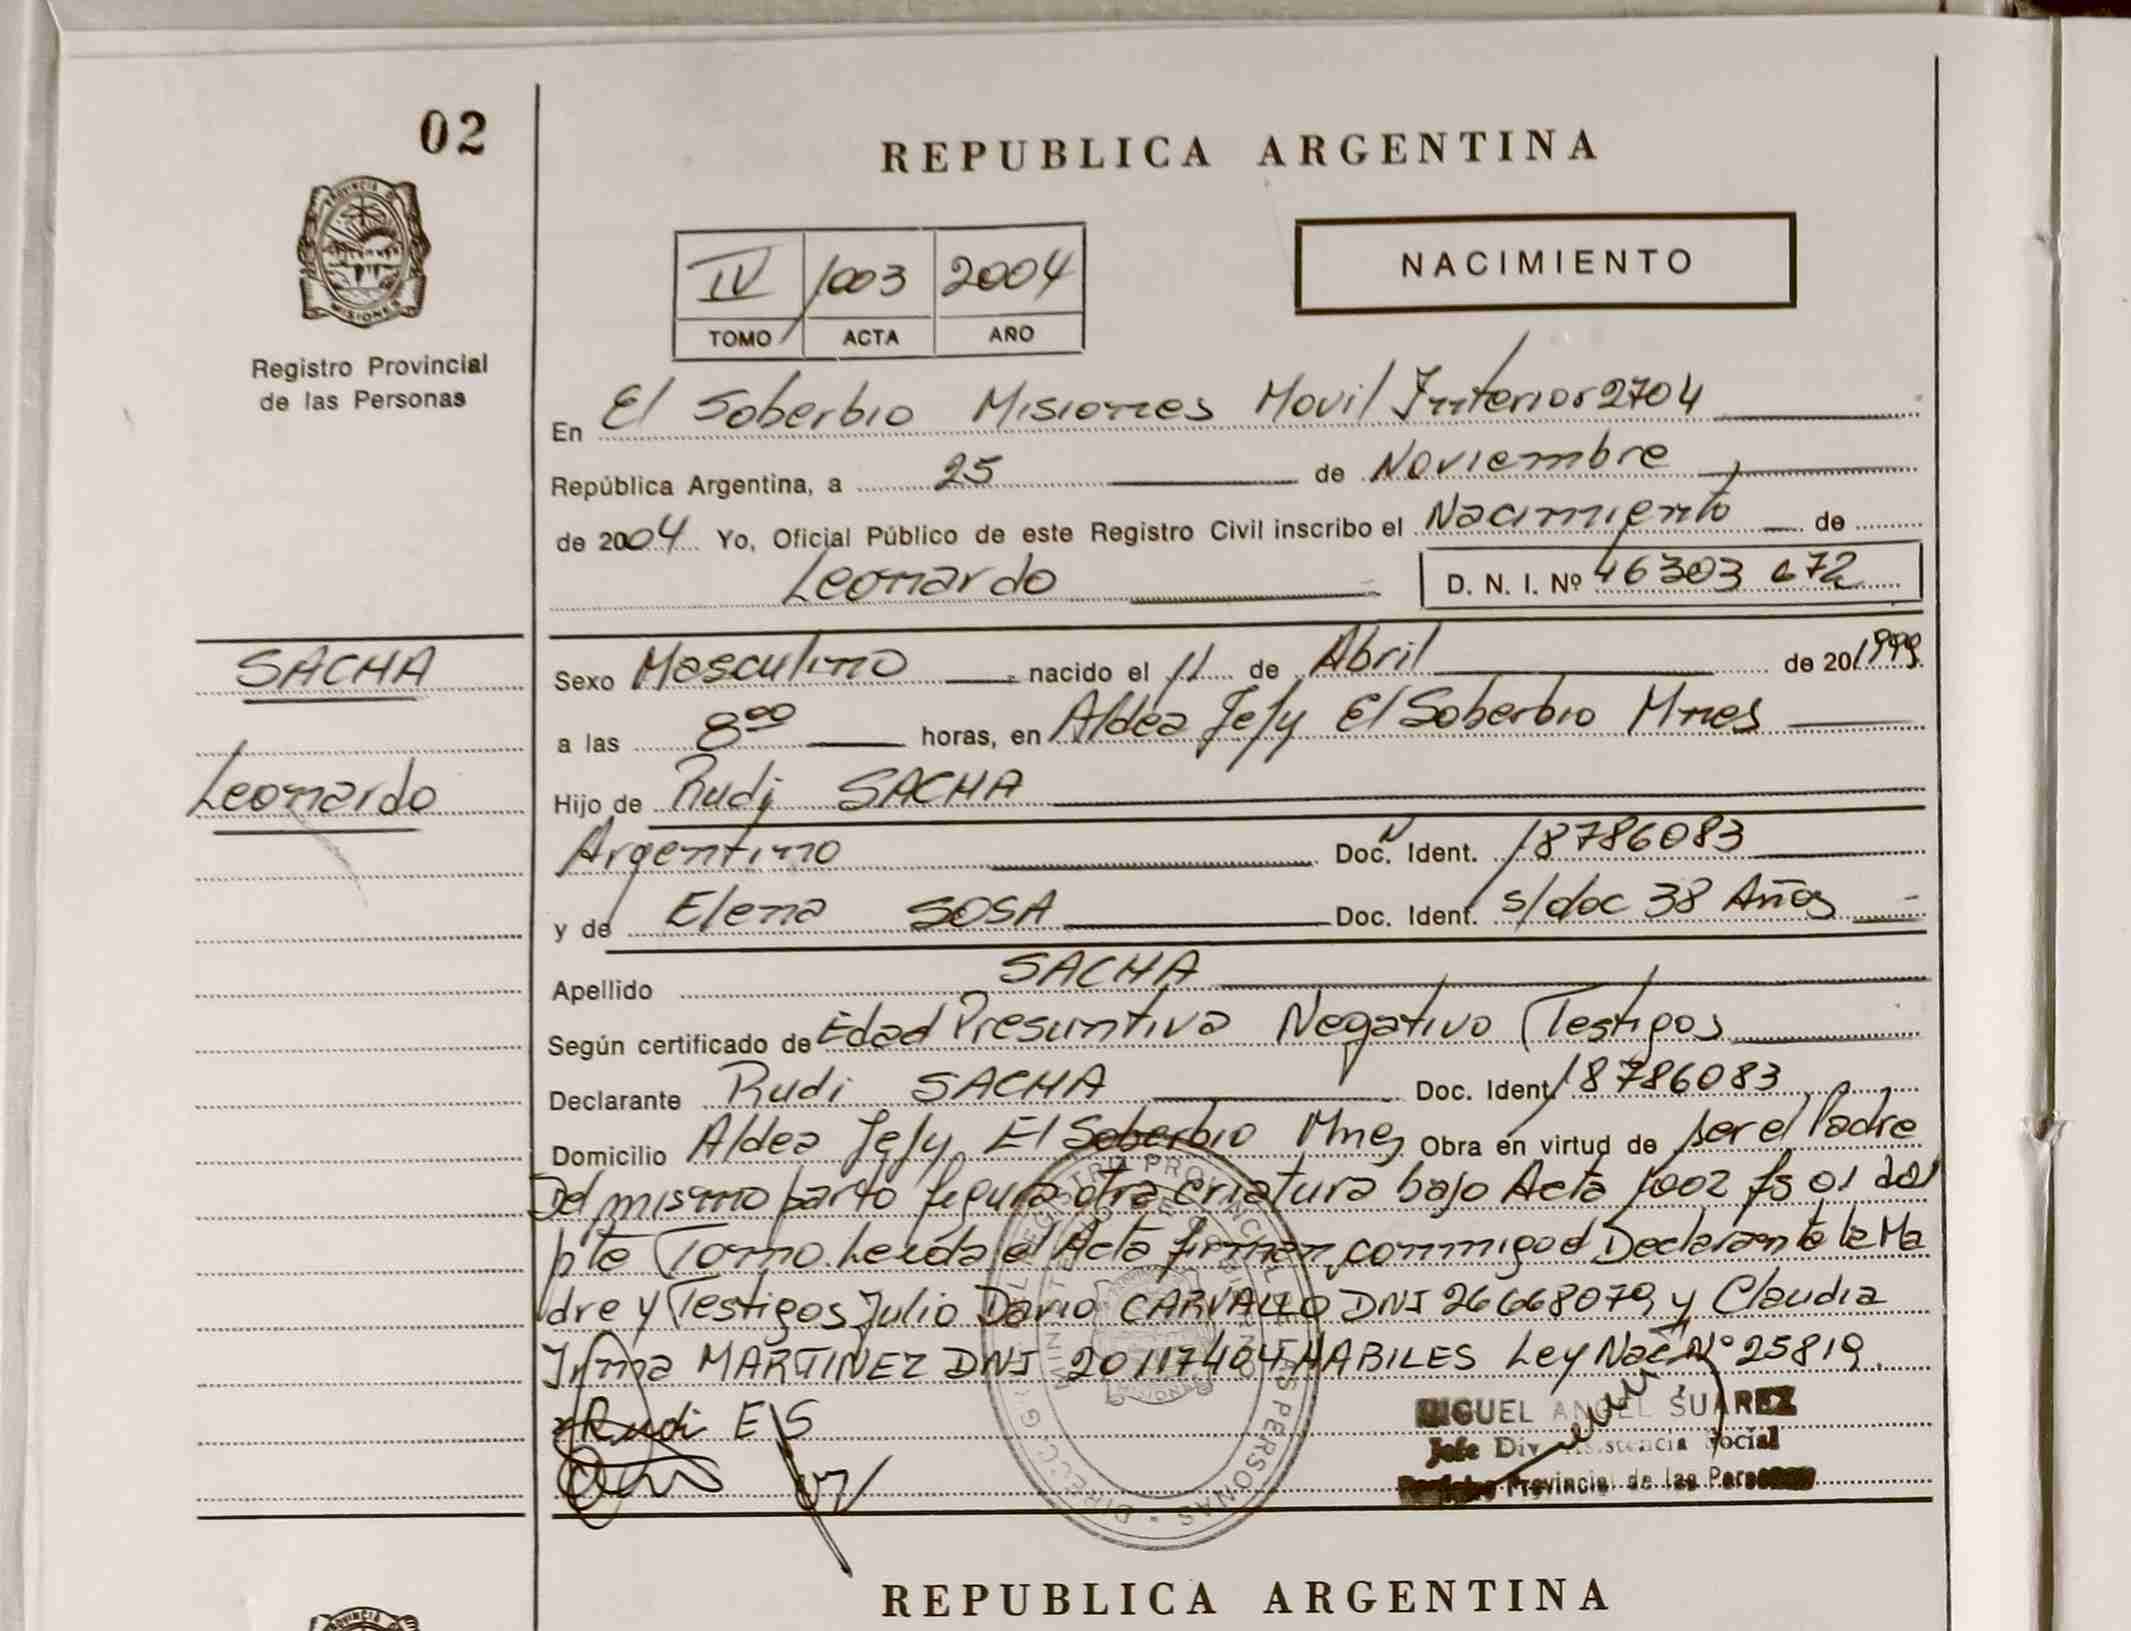 02
REPUBLICA ARGENTINA
PROVINCIA DE
MISIONES
Registro Provincial
de las Personas
IV 1003 2004
TOMO ACTA AÑO
NACIMIENTO
En El Soberbio Misiones Movil Interior 2704
República Argentina, a 25 de Noviembre
de 2004 Yo, Oficial Público de este Registro Civil inscribo el Nacimiento de
Leonardo D. N. I. Nº 46303 672
SACHA
Leonardo
Sexo Masculino nacido el 11 de Abril de 20/1999
a las 8⁰⁰ horas, en Aldea Jejy El Soberbio Mnes
Hijo de Rudi SACHA
Argentino Doc. N Ident. 18786083
y de Elena SOSA Doc. Ident. s/doc 38 Años
Apellido SACHA
Según certificado de Edad Presuntiva Negativo Testigos
Declarante Rudi SACHA Doc. Ident. 18786083
Domicilio Aldea Jejy El Soberbio Mnes Obra en virtud de ser el Padre
Del mismo parto figura otra criatura bajo Acta 1002 fs 01 del
pte Tomo. Leída el Acta firman conmigo el Declarante la Ma
dre y Testigos Julio Dario CARVALLO DNI 26668079 y Claudia
Irma MARTINEZ DNI 20117404 HABILES Ley Nac Nº 25819.
Rudi E S
MIGUEL ANGEL SUAREZ
Jefe Div. Asistencia Social
Registro Provincial de las Personas
REGISTRO PROVINCIAL DE LAS PERSONAS
MINISTERIO DE GOBIERNO
MISIONES
REPUBLICA ARGENTINA
PROVINCIA